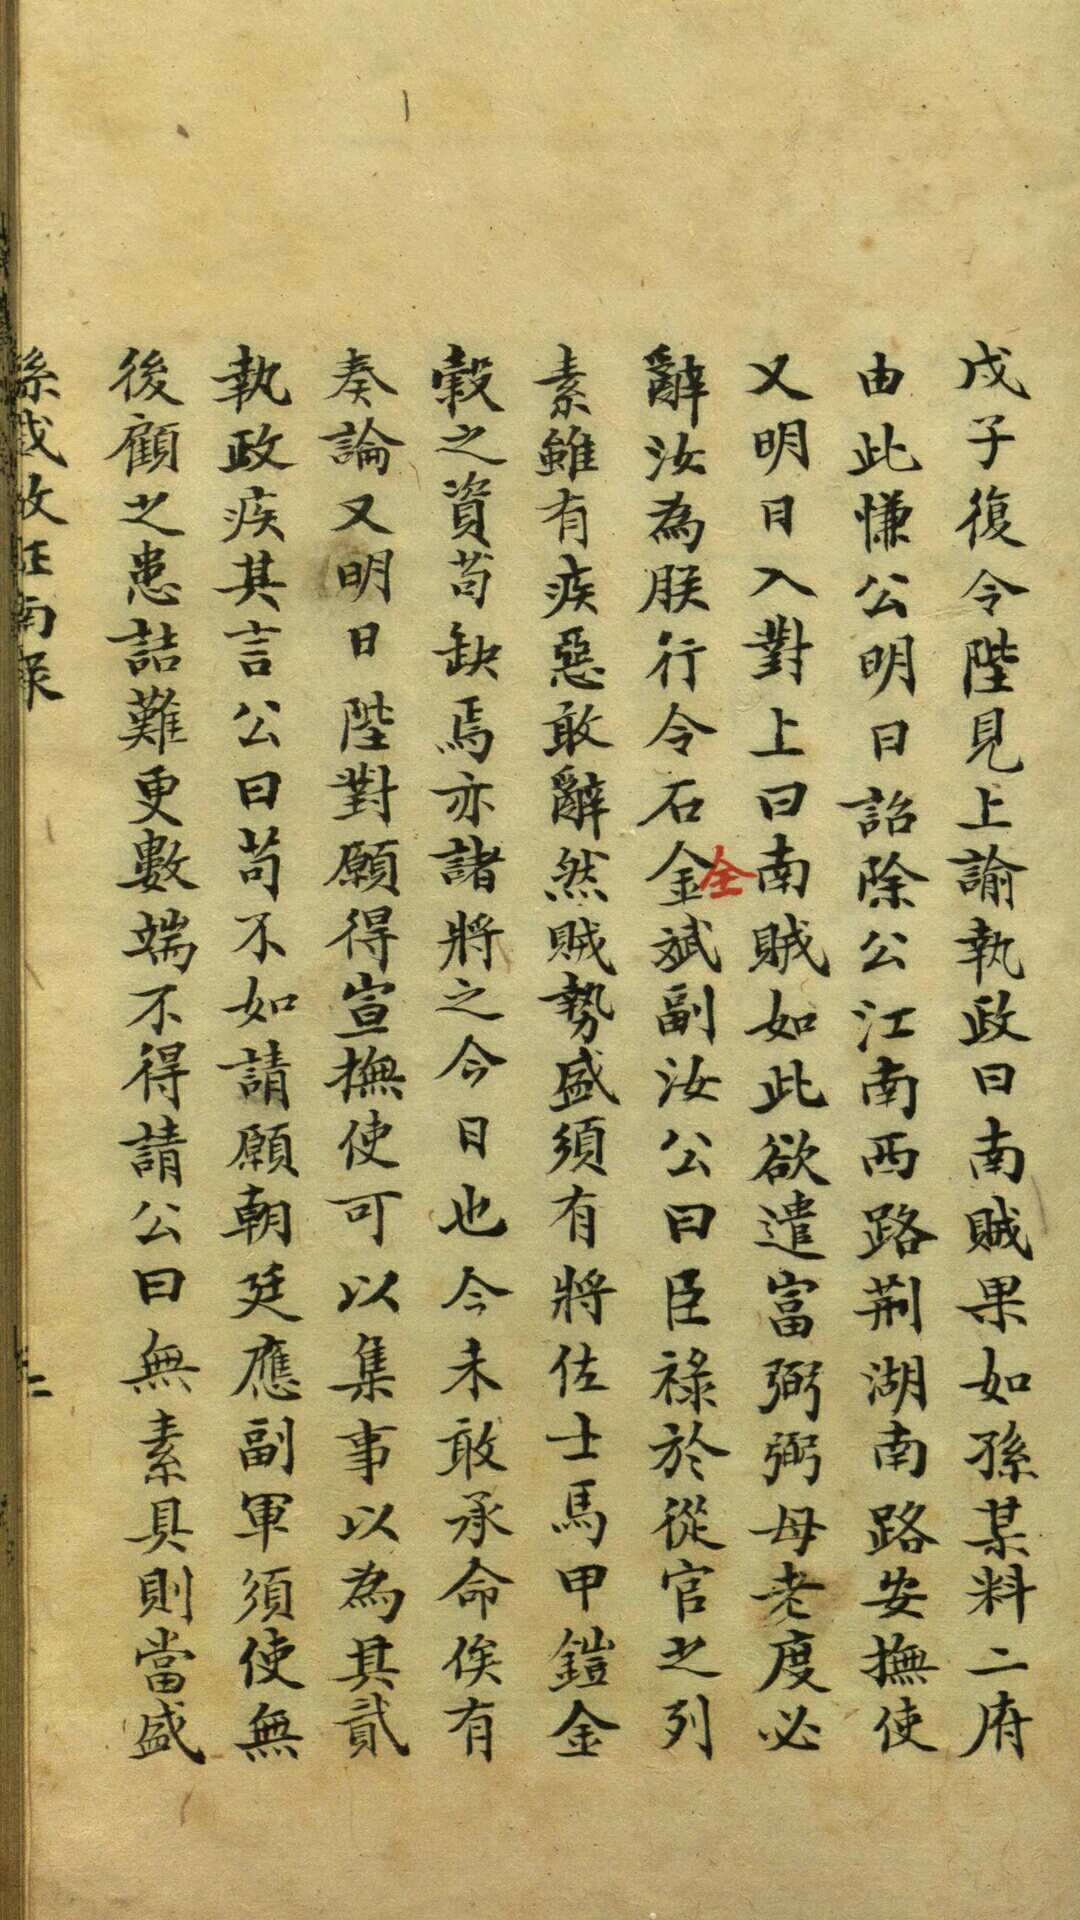 戊子復令陛見上諭執政曰南賊果如孫某料二府
由此慊公明日詔除公江南西路荆湖南路安撫使
又明日入對上曰南賊如此欲遣富弼弼母老度必
辭汝為朕行令石金斌副汝公曰臣祿於從官之列
全
素雖有疾惡敢辭然賊勢盛須有將佐士馬甲鎧金
穀之資苟缺焉亦諸將之今日也今未敢承命俟有
奏論又明日陛對願得宣撫使可以集事以為其貳
執政疾其言公曰苟不如請願朝廷應副軍須使無
後顧之患詰難更數端不得請公曰無素具則當盛
孫威敏征南錄